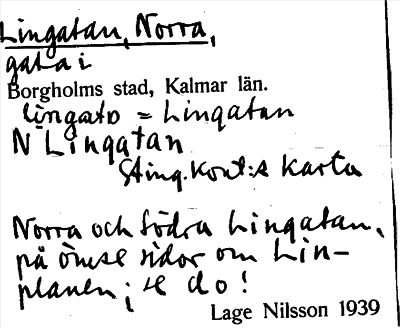 Lingatan, Norra,
gata i
Borgholms stad, Kalmar län.
lingatọ = Lingatan
N Lingatan
Sting.kont:s karta
Norra och Södra Lingatan,
på ömse sidor om Lin-
planen; se do!
Lage Nilsson 1939